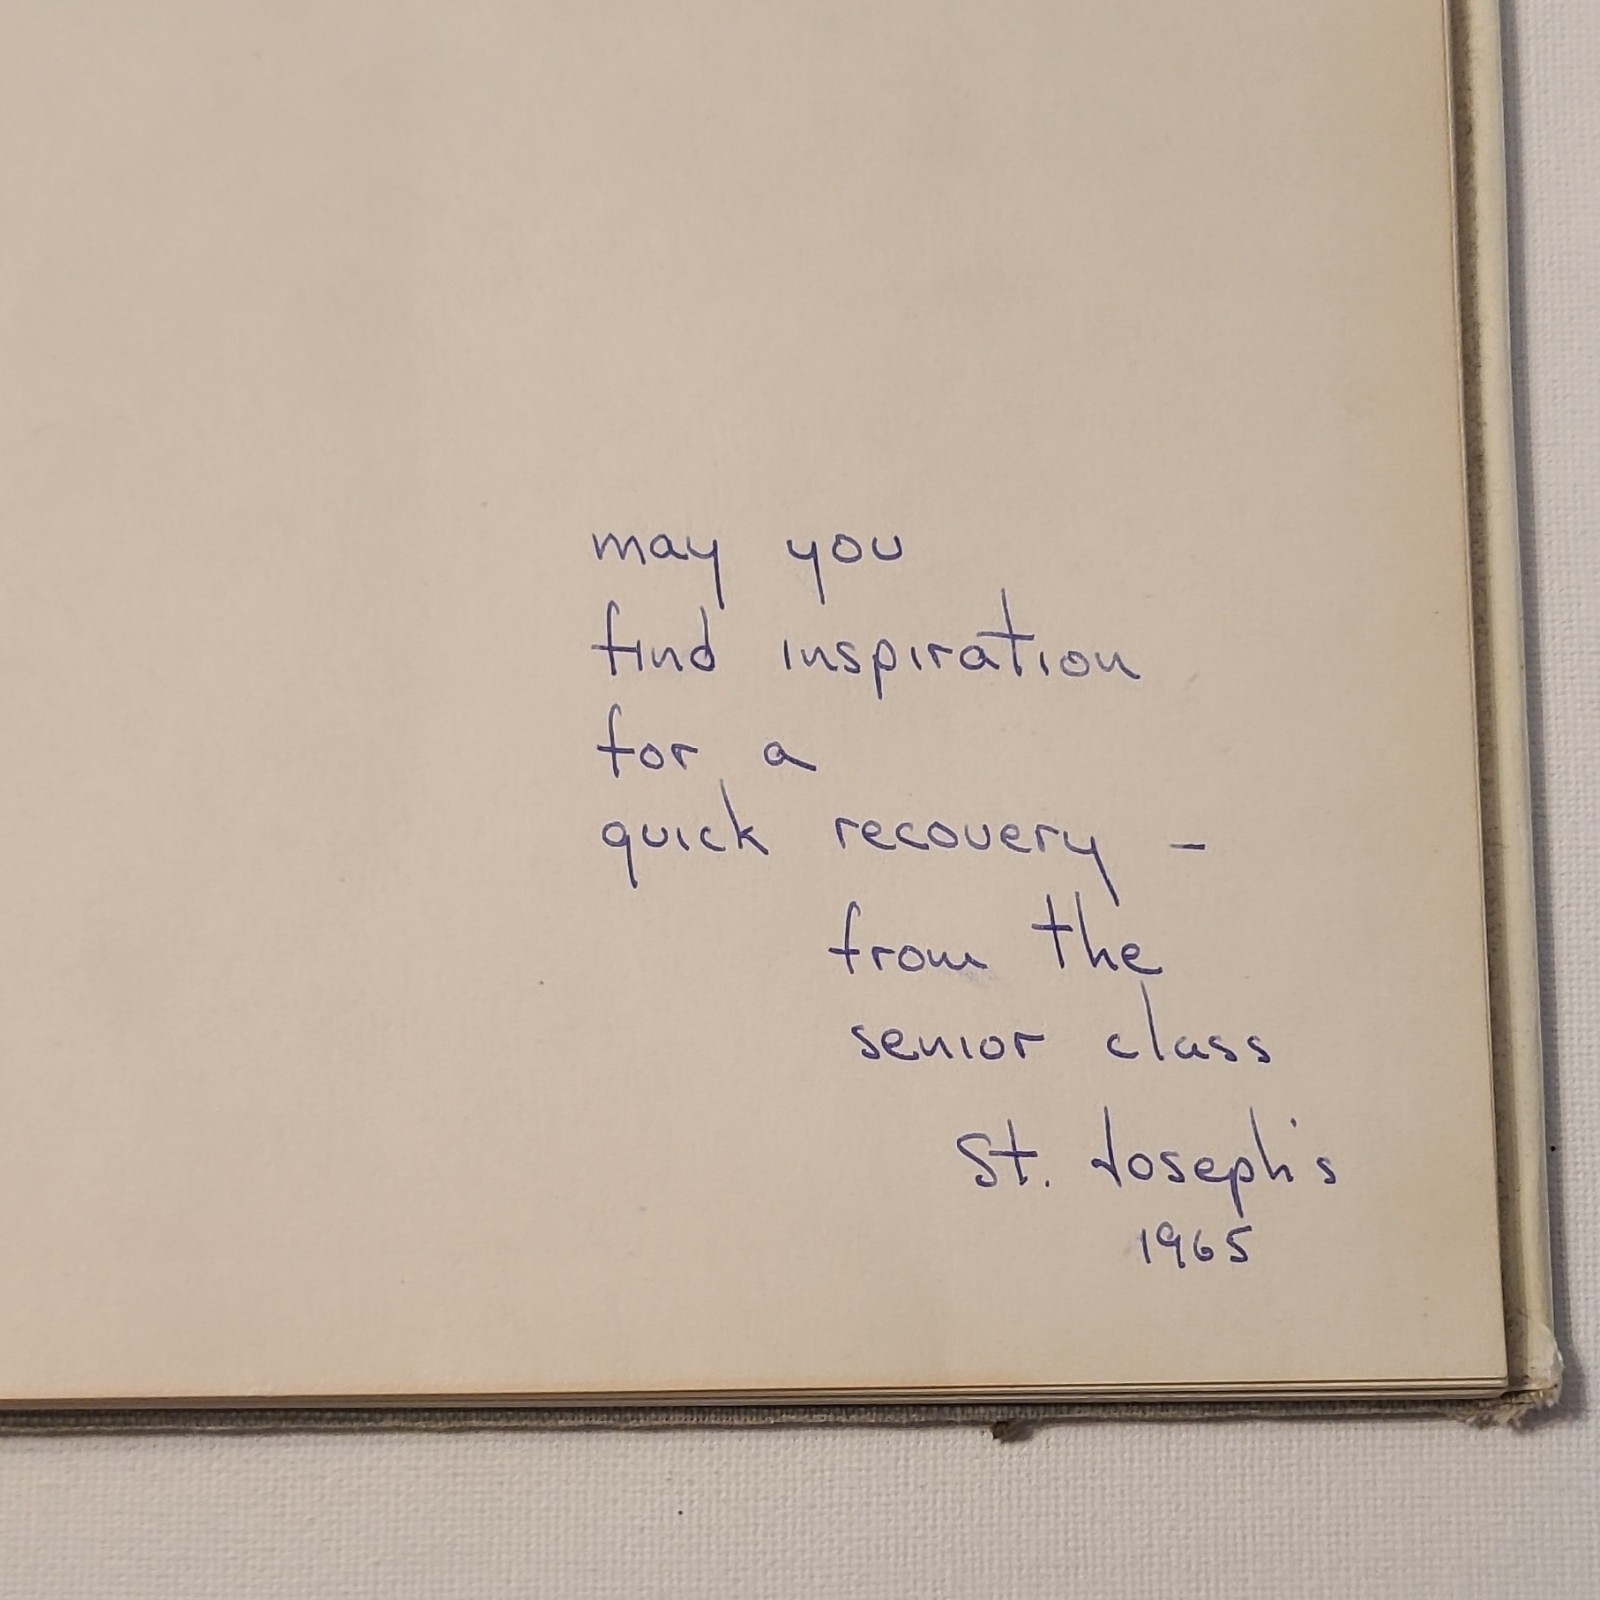 may you
find inspiration
for a
quick recovery -
from the
senior class
St. Joseph's
1965